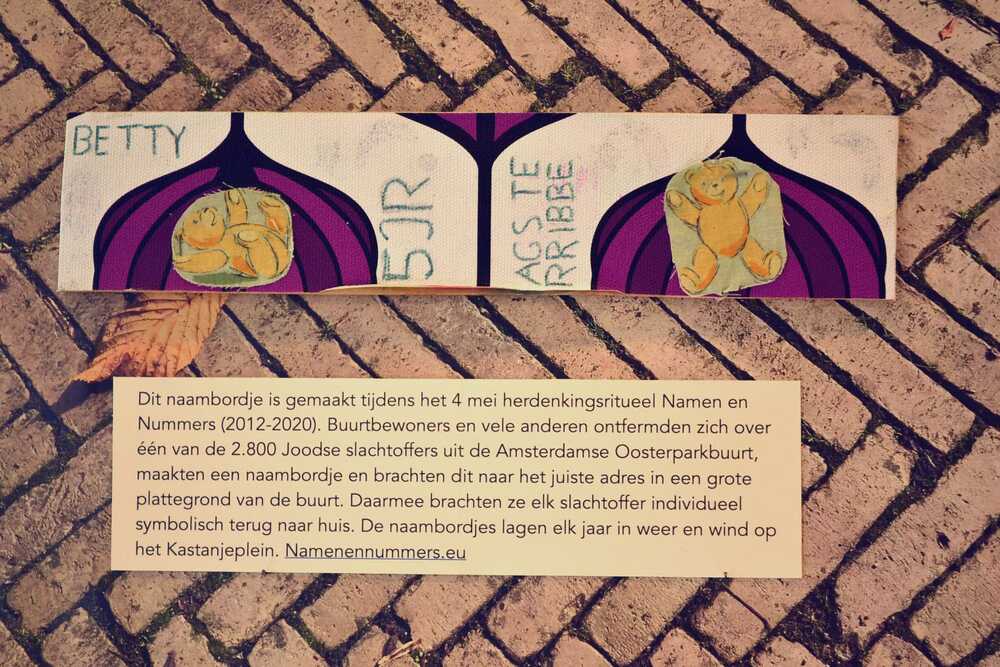 BETTY
5JR.
AGS TE
RRIBBE
Dit naambordje is gemaakt tijdens het 4 mei herdenkingsritueel Namen en
Nummers (2012-2020). Buurtbewoners en vele anderen ontfermden zich over
één van de 2.800 Joodse slachtoffers uit de Amsterdamse Oosterparkbuurt,
maakten een naambordje en brachten dit naar het juiste adres in een grote
plattegrond van de buurt. Daarmee brachten ze elk slachtoffer individueel
symbolisch terug naar huis. De naambordjes lagen elk jaar in weer en wind op
het Kastanjeplein. Namenennummers.eu